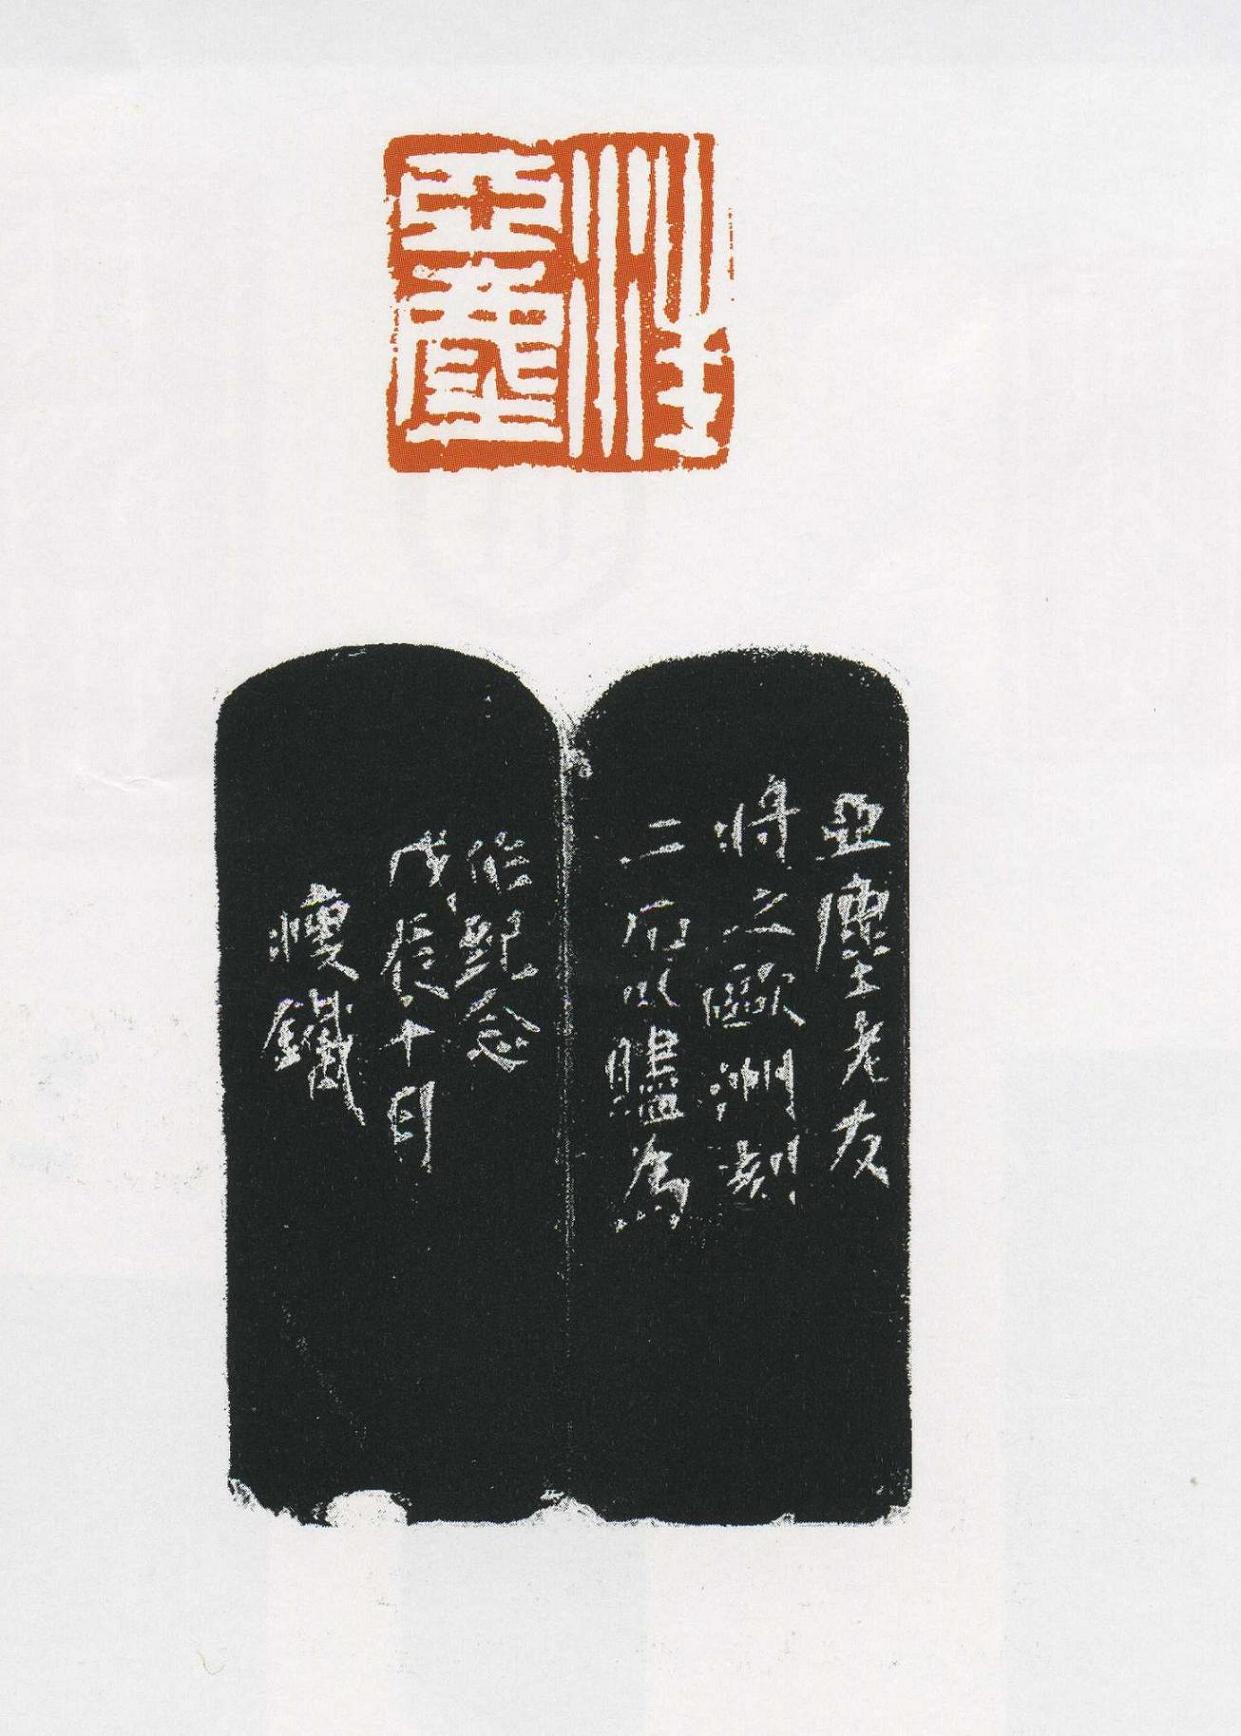 汪
亞塵
亞塵老友
將之歐洲刻
二石以贐為
作紀念
戊辰十月
瘦鐵